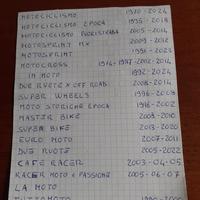 MOTOCICLISMO 1970-2024
MOTOCICLISMO EPOCA 1995-2018
MOTOCICLISMO FUORISTRADA 2005-2014
MOTOSPRINT MX 2009-2012
MOTOSPRINT 1991-2023
MOTOCROSS 1976-1997-2002-2014
IN MOTO 1992-2024
DUE RUOTE X OFF ROAD 2008-2014
SUPER WHEELS 1996-2008
MOTO STORICHE EPOCA 1996-2002
MASTER BIKE 2009-2010
SUPER BIKE 2013-2020
EURO MOTO 2007-2011
DUE RUOTE 2005-2022
CAFE RACER 2003-04-05
RACER MOTO E PASSIONE 2005-06-07
LA MOTO
TUTTOMOTO 1990-2000